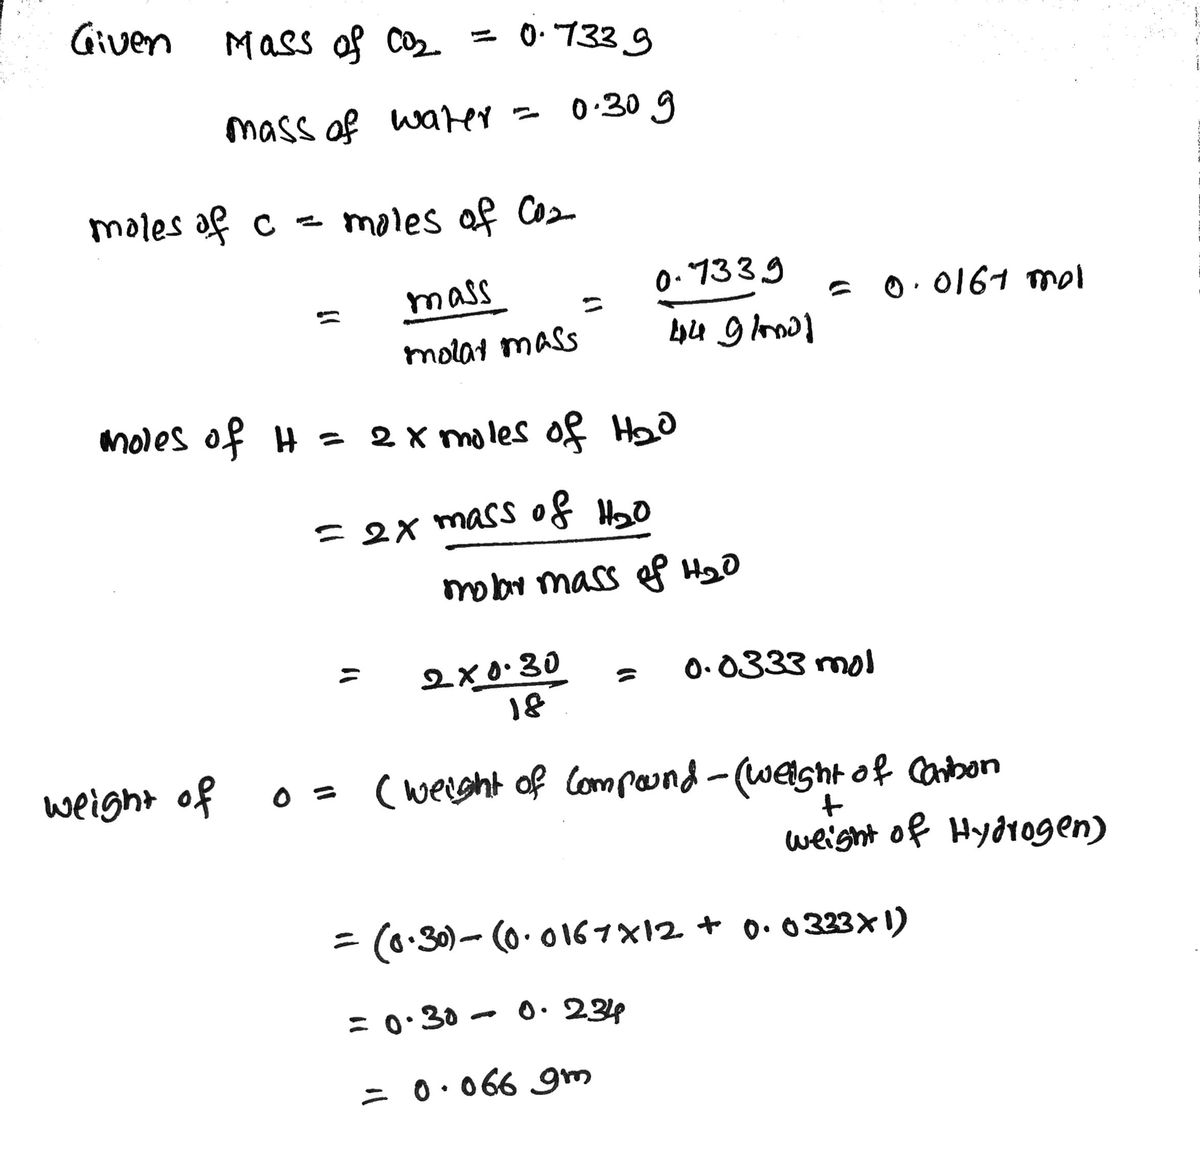 Given Mass of CO2 = 0.733 g
mass of water = 0.30 g
moles of C = moles of CO2
= mass / molar mass = 0.733 g / 44 g/mol = 0.0167 mol
moles of H = 2 x moles of H2O
= 2x mass of H2O / molar mass of H2O
= 2x0.30 / 18 = 0.0333 mol
weight of O = (weight of Compound - (weight of Carbon
+
weight of Hydrogen)
= (0.30) - (0.0167x12 + 0.0333x1)
= 0.30 - 0.234
= 0.066 gm